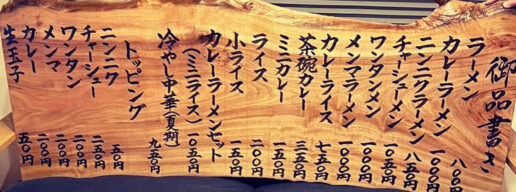 御品書き
ラーメン 八〇〇円
カレーラーメン 一〇〇〇円
ニンニクラーメン 八五〇円
チャーシューメン 一〇五〇円
ワンタンメン 一〇〇〇円
メンマラーメン 一〇〇〇円
カレーライス 七五〇円
茶碗カレー 三五〇円
ミニカレー 二五〇円
ライス 二〇〇円
小ライス 一五〇円
カレーラーメンセット
(ミニライス) 一〇五〇円
冷やし中華(夏期) 九五〇円
トッピング
ニンニク 五〇円
チャーシュー 二五〇円
ワンタン 二〇〇円
メンマ 二〇〇円
カレー 二〇〇円
生玉子 五〇円